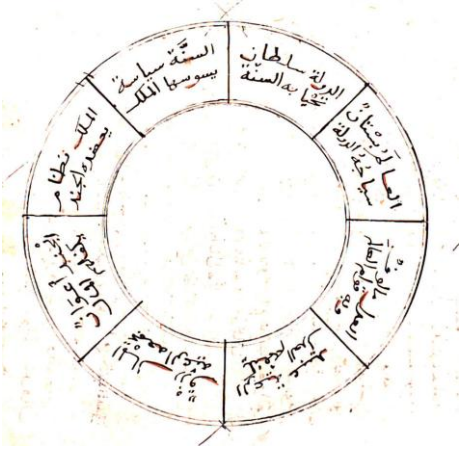 العالم بستان
سياجه الدولة
الدولة سلطان
تحيا به السنة
السنة سياسة
يسوسها الملك
الملك نظام
يعضده الجند
الجند اعوان
يكفلهم المال
المال رزق
تجمعه الرعية
الرعية عبيد
يكنفهم العدل
العدل مالوف
وبه قوام العالم